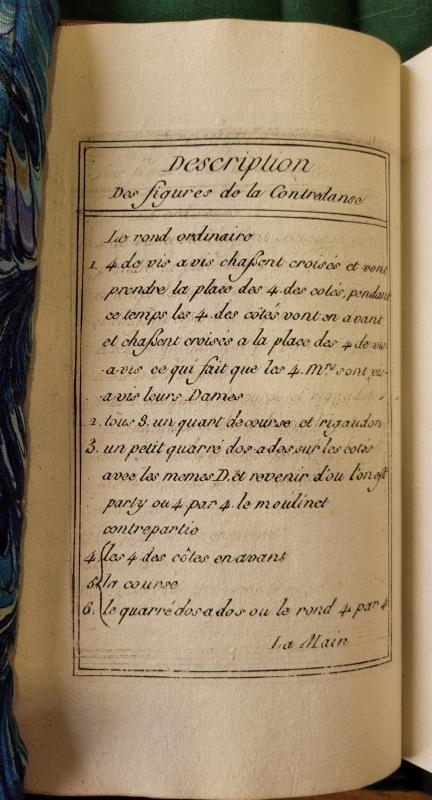 Description
Des figures de la Contredanse
Le rond ordinaire
1. 4. de vis a vis chaßent croisés et vont
prendre la place des 4. des cotés, pendant
ce temps les 4. des côtés vont en avant
et chaßent croisés a la place des 4 de vis-
-a-vis ce qui fait que les 4. Mrs sont vis-
a-vis leurs Dames
2. tous 8. un quart de course et rigaudon
3. un petit quarré dos-a-dos sur les cotés
avec les memes D. et revenir d'ou l'on est
party ou 4 par 4. le moulinet
contrepartie
4. les 4 des côtes en avant
5. la course
6. le quarré dos a dos ou le rond 4 par 4
La Main